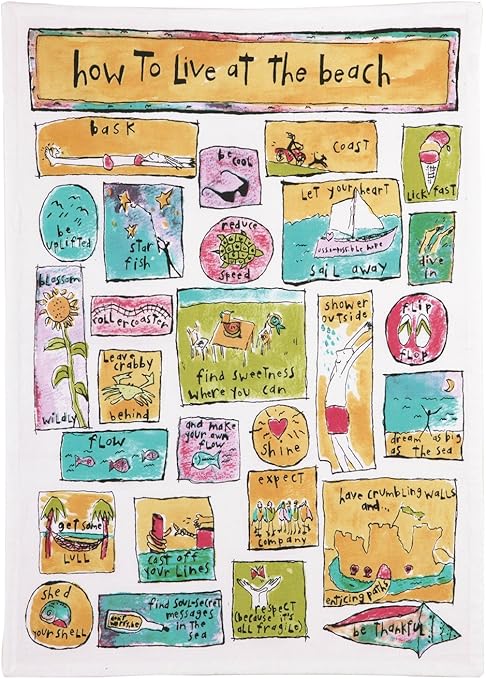 how To Live at the beach
bask
be
cool
coast
Lick fast
be
uplifted
star
fish
reduce
speed
Let your heart
u.s.s. impossible hope
sail away
dive
in
blossom
wildly
rollercoaster
Leave
crabby
behind
find sweetness
where you can
shower
outside
flip
flop
flow
and make
your own
flow
shine
dream as big
as the sea
get some
LULL
cast off
your Lines
expect
company
have crumbling walls
and...
enticing paths
shed
your shell
find soul-secret
messages
in the
sea
don't
worry, be
respect
(because it's
all fragile)
be thankful